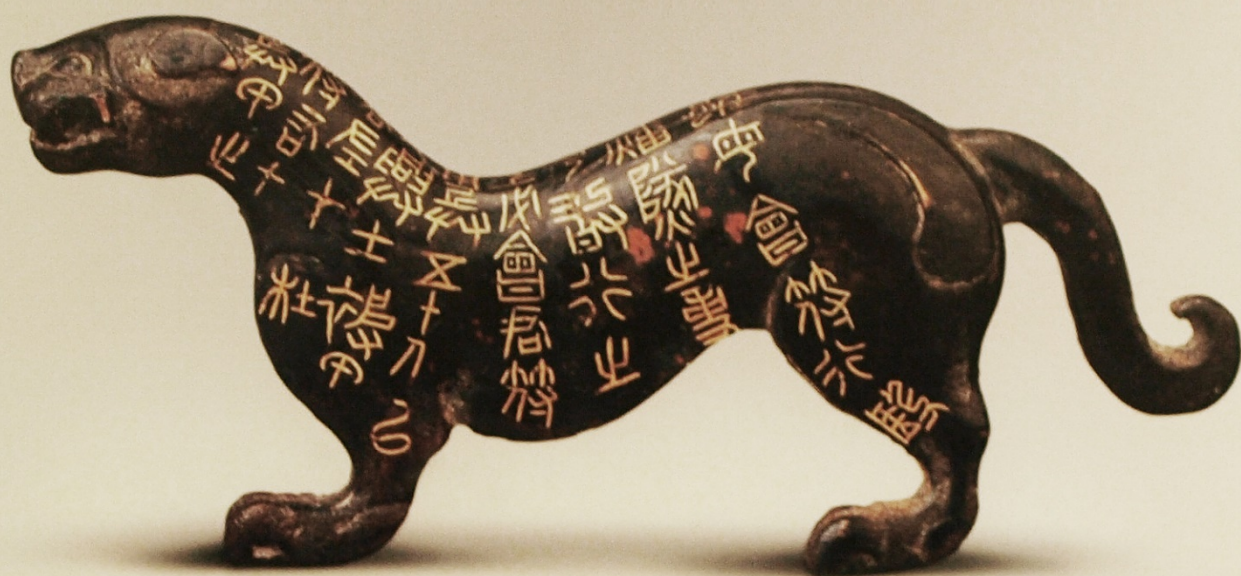 兵甲之符
右才君左才杜
凡興士被甲
用兵五十人以
上必會君符
乃敢行之
燔燧之事
雖母會符行殹